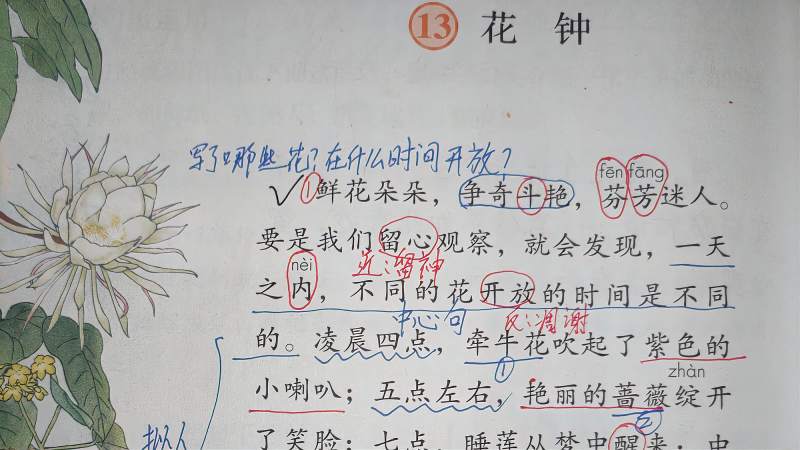 13 花钟
写了哪些花？在什么时间开放？
fēn fāng
①鲜花朵朵，争奇斗艳，芬芳迷人。
要是我们留心观察，就会发现，一天
nèi
近：留神
之内，不同的花开放的时间是不同
中心句 反：凋谢
的。凌晨四点，牵牛花吹起了紫色的
① zhàn
小喇叭；五点左右，艳丽的蔷薇绽开
②
拟人
了笑脸；七点，睡莲从梦中醒来；中